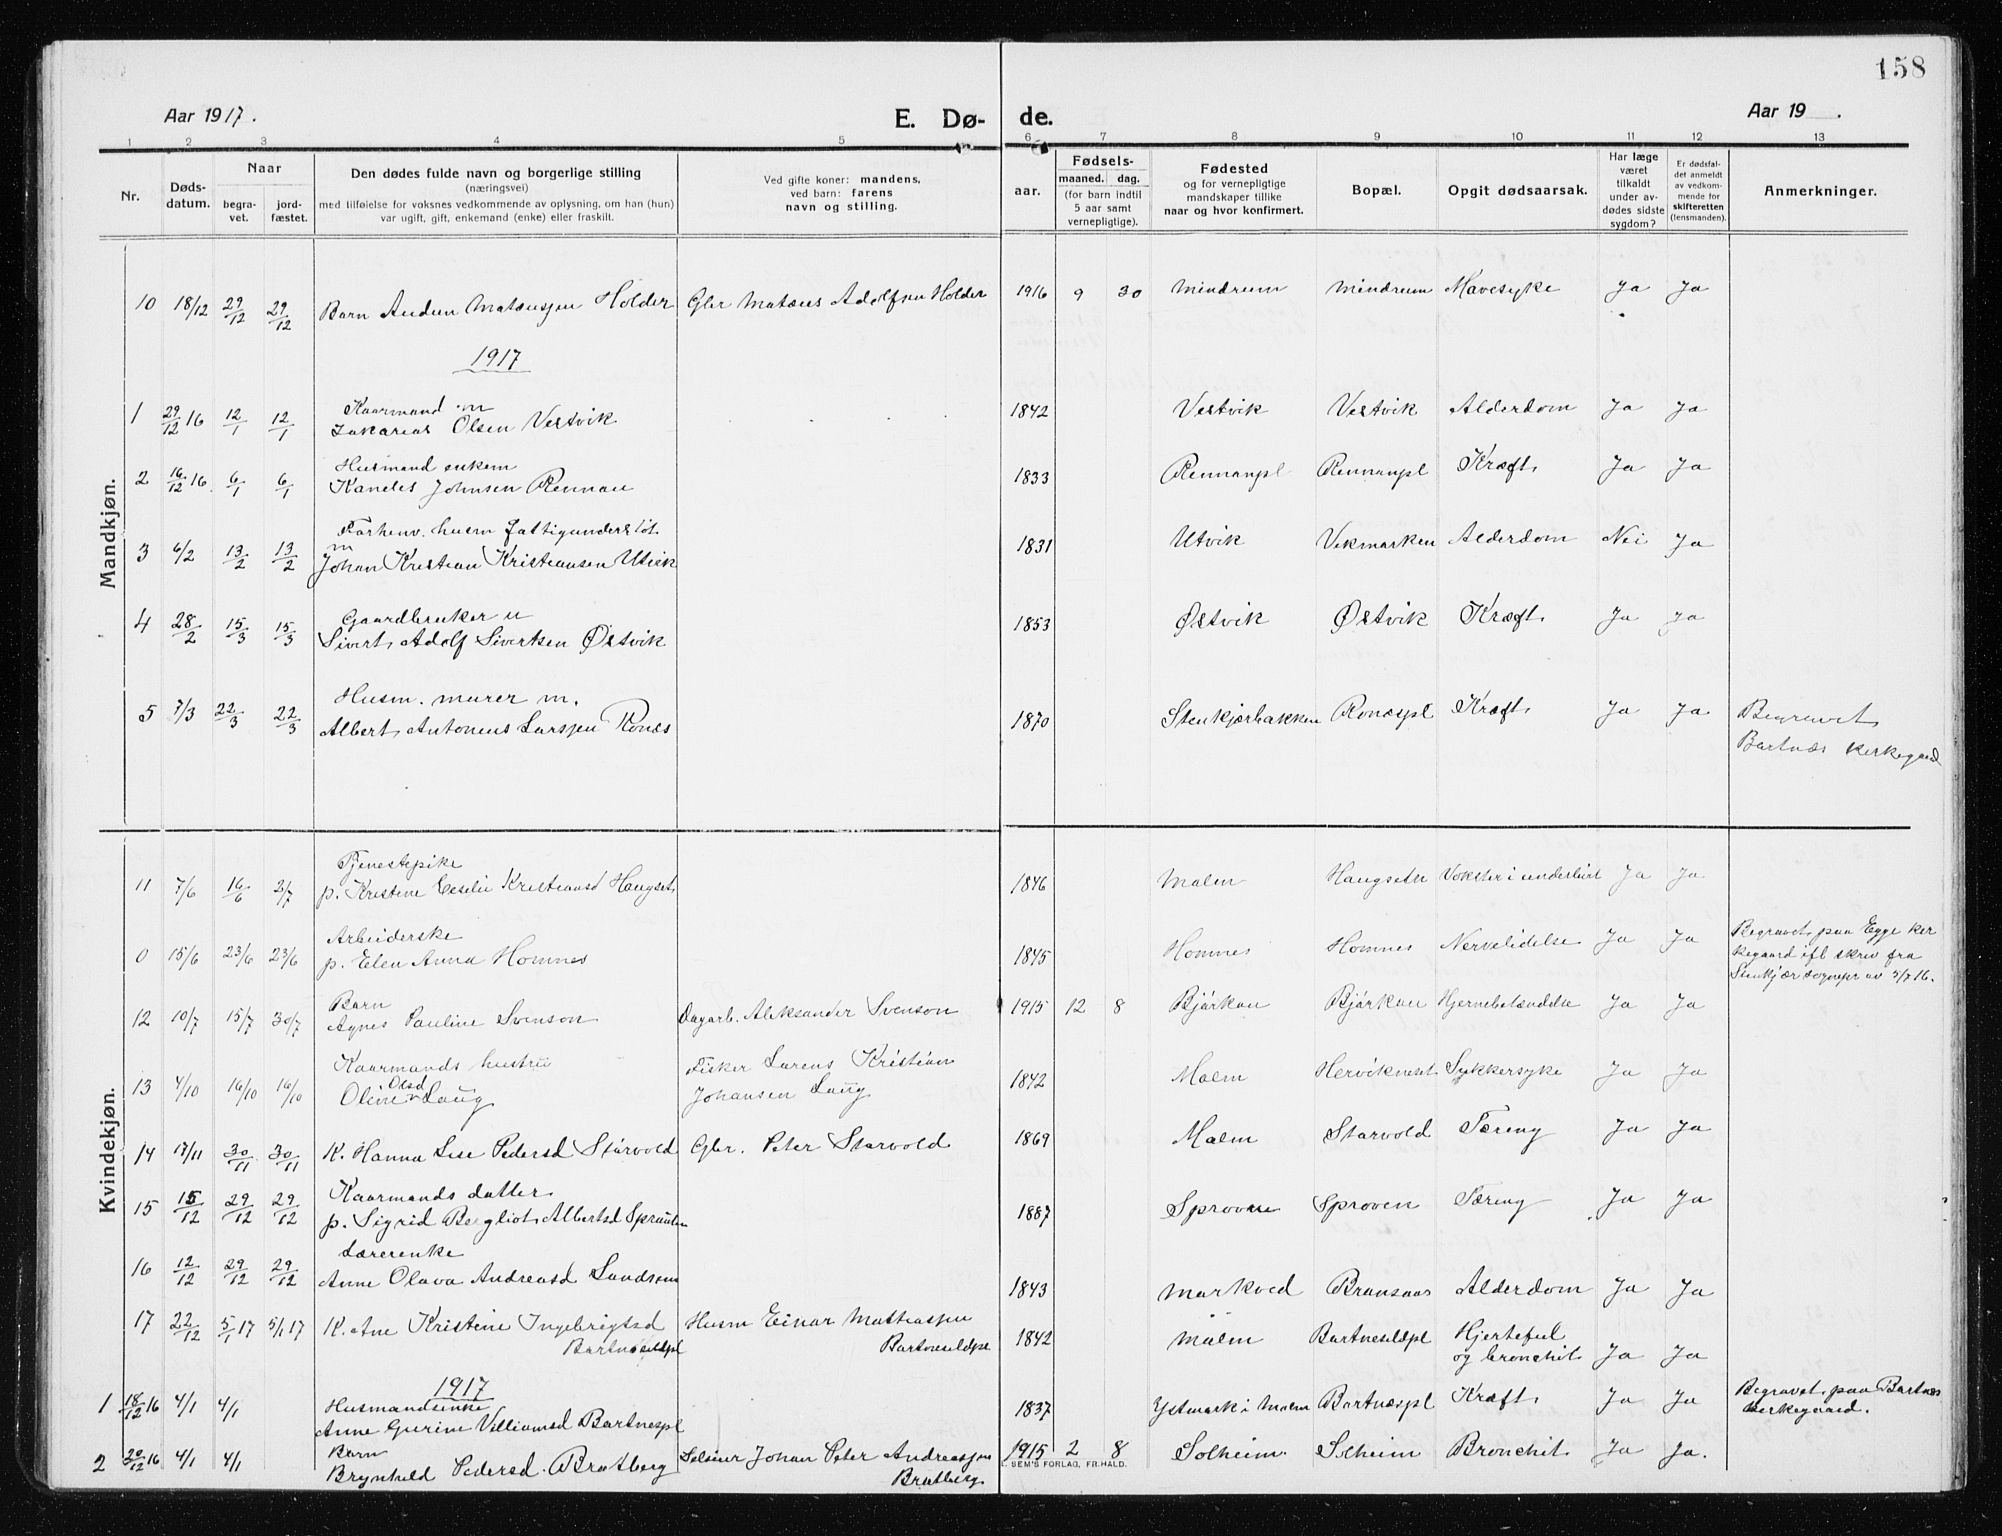 158
Aar 1917.
E. Dø- de.
Aar 19 .
1 2 3 4 5 6 7 8 9 10 11 12 13
Nr.
Døds-
datum.
Naar
begra-
vet.
jord-
fæstet.
Den dødes fulde navn og borgerlige stilling
(næringsvei)
med tilføielse for voksnes vedkommende av oplysning, om han (hun)
var ugift, gift, enkemand (enke) eller fraskilt.
Ved gifte koner: mandens,
ved barn: farens
navn og stilling.
aar.
Fødsels-
maaned. dag.
(for barn indtil
5 aar samt
vernepligtige).
Fødested
og for vernepligtige
mandskaper tillike
naar og hvor konfirmert.
Bopæl.
Opgit dødsaarsak.
Har læge
været
tilkaldt
under av-
dødes sidste
sygdom?
Er dødsfal-
det anmeldt
av vedkom-
mende for
skifteretten
(lensmanden).
Anmerkninger.
Mandkjøn.
10 18/12 29/12 29/12 Barn Holder Gbr Adolfsen Holder 1916 9 30 Mindrum Mindrum Mavesyke Ja Ja
1917
Kaarmand m
1 29/12 16 12/1 12/1 Zakarias Olsen Vestvik 1842 Vestvik Vestvik Alderdom Ja Ja
Husmand enkem
2 16/12 16. 6/1 6/1 Johnsen Rennan 1833 Rennanpl Rennanpl Kræft Ja Ja
Forhenv. husm fattigunderstøt.
m
3 6/2 13/2 13/2 Johan Kristian Kristiansen Utvik 1831 Utvik Vekmarken Alderdom Nei Ja
Gaardbruker u
4 28/2 15/3 15/3 Sivert Adolf Sivertsen Østvik 1853 Østvik Østvik Kræft Ja Ja
Husm. murer m.
5 7/3 22/3 22/3 Albert Antonius Larssen Ronæs 1870 Stenkjærbakken Ronæspl Kræft Ja Ja Begravet
Bartnæs kirkegaard
Kvindekjøn.
Tjenestepike
11 7/6 16/6 2/7 p. Kristine Kristiansd Haugset 1846 Malm Haugset Ja Ja
Arbeiderske
0 15/6 23/6 23/6 p. Elen Anna Homnes 1845 Homnes Homnes Nervelidelse Ja Ja Begravet paa Egge kir
kegaard ifl skriv fra
Stenkjær sognepr av 3/7 16.
Barn
12 10/7 15/7 30/7 Agnes Pauline Svenson Dagarb. Aleksander Svenson 1915 12 8 Bjørkan Bjørkan Hjernebetændelse Ja Ja
Kaarmands hustru Fisker Lorens Kristian
Olsd
13 4/10 16/10 16/10 Oline Laug Johansen Laug 1842 Malm Hervikneset Sukkersyke Ja Ja
14 17/11 30/11 30/11 K. Hanna Lise Pedersd Størvold Gbr. Peter Størvold 1869 Malm Størvold Tæring Ja Ja
Kaarmands datter
15 15/12 29/12 29/12 p. Sigrid Bergliot Albertsd 1887 Sproven Sproven Tæring Ja Ja
Lærerenke
16 12/12 29/12 29/12 Anne Olava Andreasd 1843 Markved Bransaas Alderdom Ja Ja
17 22/12 5/1 17 5/1 17 K. Ane Kristine Ingebrigtsd Husm Einar Mattiassen 1842 Malm Hjertefeil
og bronchit Ja Ja
1917
Husmandsenke
1 18/12 16 4/1 4/1 Anne Gurine Villiamsd Bartnespl 1837 Ystmark i Malm Bartnæspl Kræft Ja Ja Begravet paa Bartnæs
kirkegaard.
Barn
2 20/12 16 4/1 4/1 Brynhild Pedersd. Bratberg Johan Peter Andreassen
Bratberg 1915 2 8 Solheim Solheim Bronchit Ja Ja.
SEM'S FORLAG, FR.HALD.